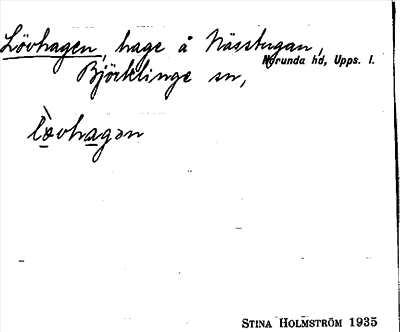 Lövhagen, hage å Nässtugan,
Norunda hd, Upps. l.
Björklinge sn,
lòvhagən
STINA HOLMSTRÖM 1935